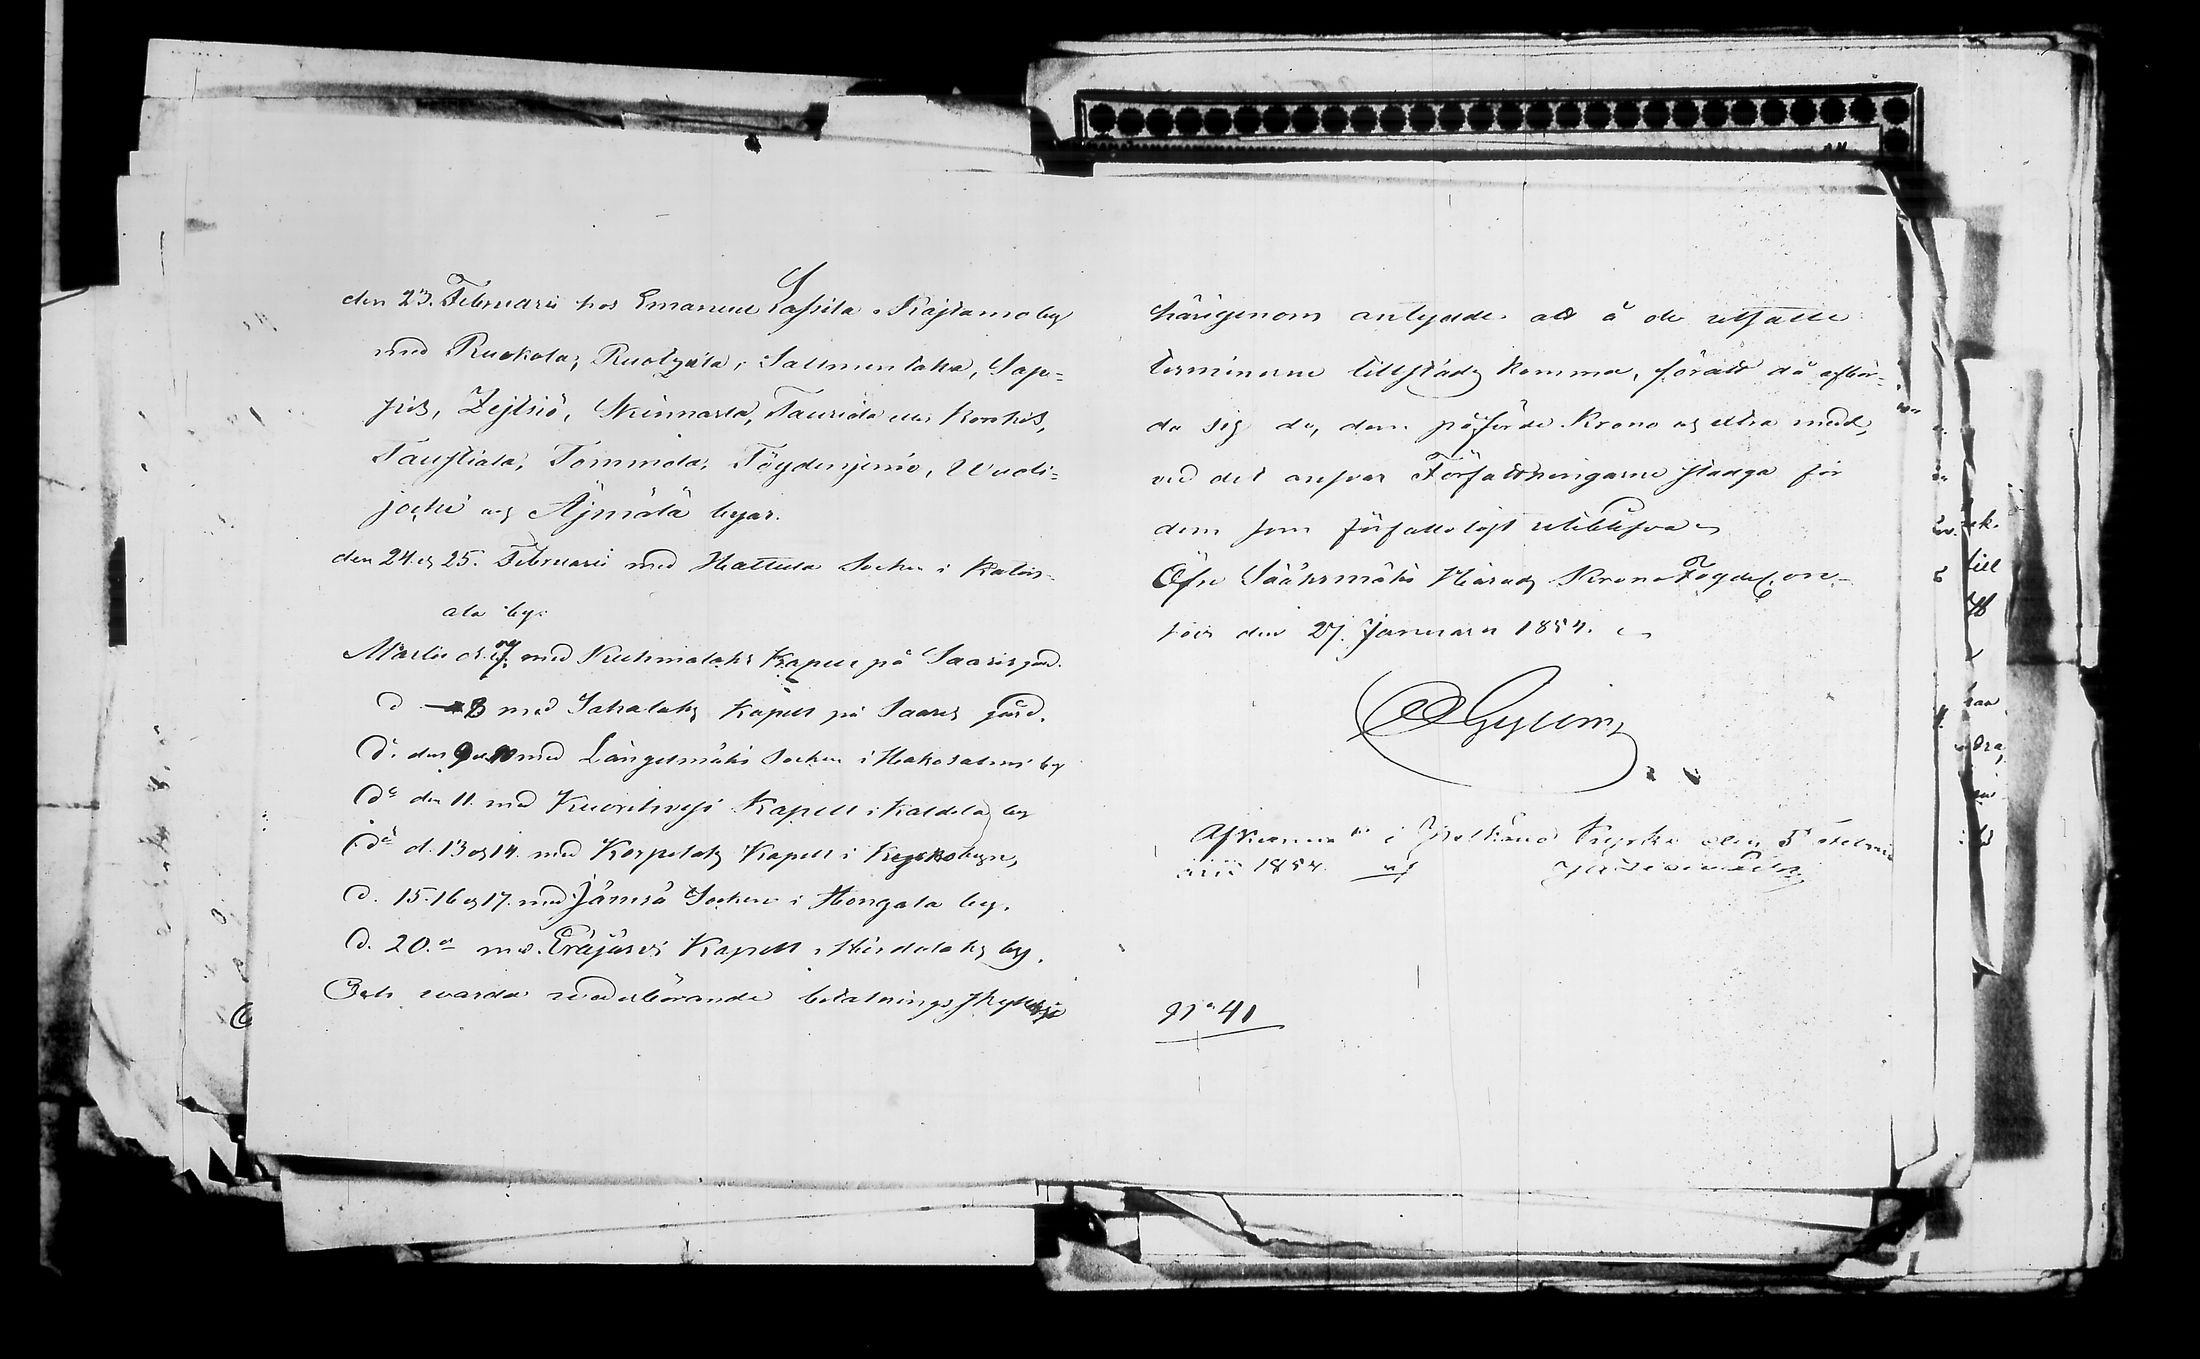 den 23. Februarii hos Emanuel Lassila i Rajlamo by
med Ruokola, Ruotzula, Saltmentaka, Sap=
pis, Zejtsiö, Skinnarla, Taurula eller Korkis,
Taustiala, Tommola, Töydenjemi, Wuoli=
jocki och Äjmälä byar.
den 24 och 25. Februarii med Hattula Socken i Katis-
ala by.
Martii d. 7. med Kuhmalaks Kapell på Saaris gård.
d 8 med Sahalaks Kapell på Saaris gård.
d. den 9 och 10 med Längelmäki Socken i Hakosalmi by
do den 11. med Kuorehvesi Kapell i Kaldila by
do d. 13 och 14. med Korpilaks Kapell i Kyrkobyn,
d. 15. 16 och 17. med Jämsä Socken i Hongala by.
d. 20. med Eräjärvi Kapell i Hirdolaks by.
Och warda wederbörande betalnings skyldige
härigenom antydde att å de utsatte
terminerne tillstädes komma, för att då afbör-
da sig de, dem påförde Krono och andra med,
vid det answar Författningarne stadga för
dem som förfallolöst utebliva.
Öfre Sääksmäki Härads Krono Fögderi con-
toir den 27. Januarii 1854.
Afkunnat i Pelkäne Kyrka den 5 Febru-
arii 1854. af
No 41